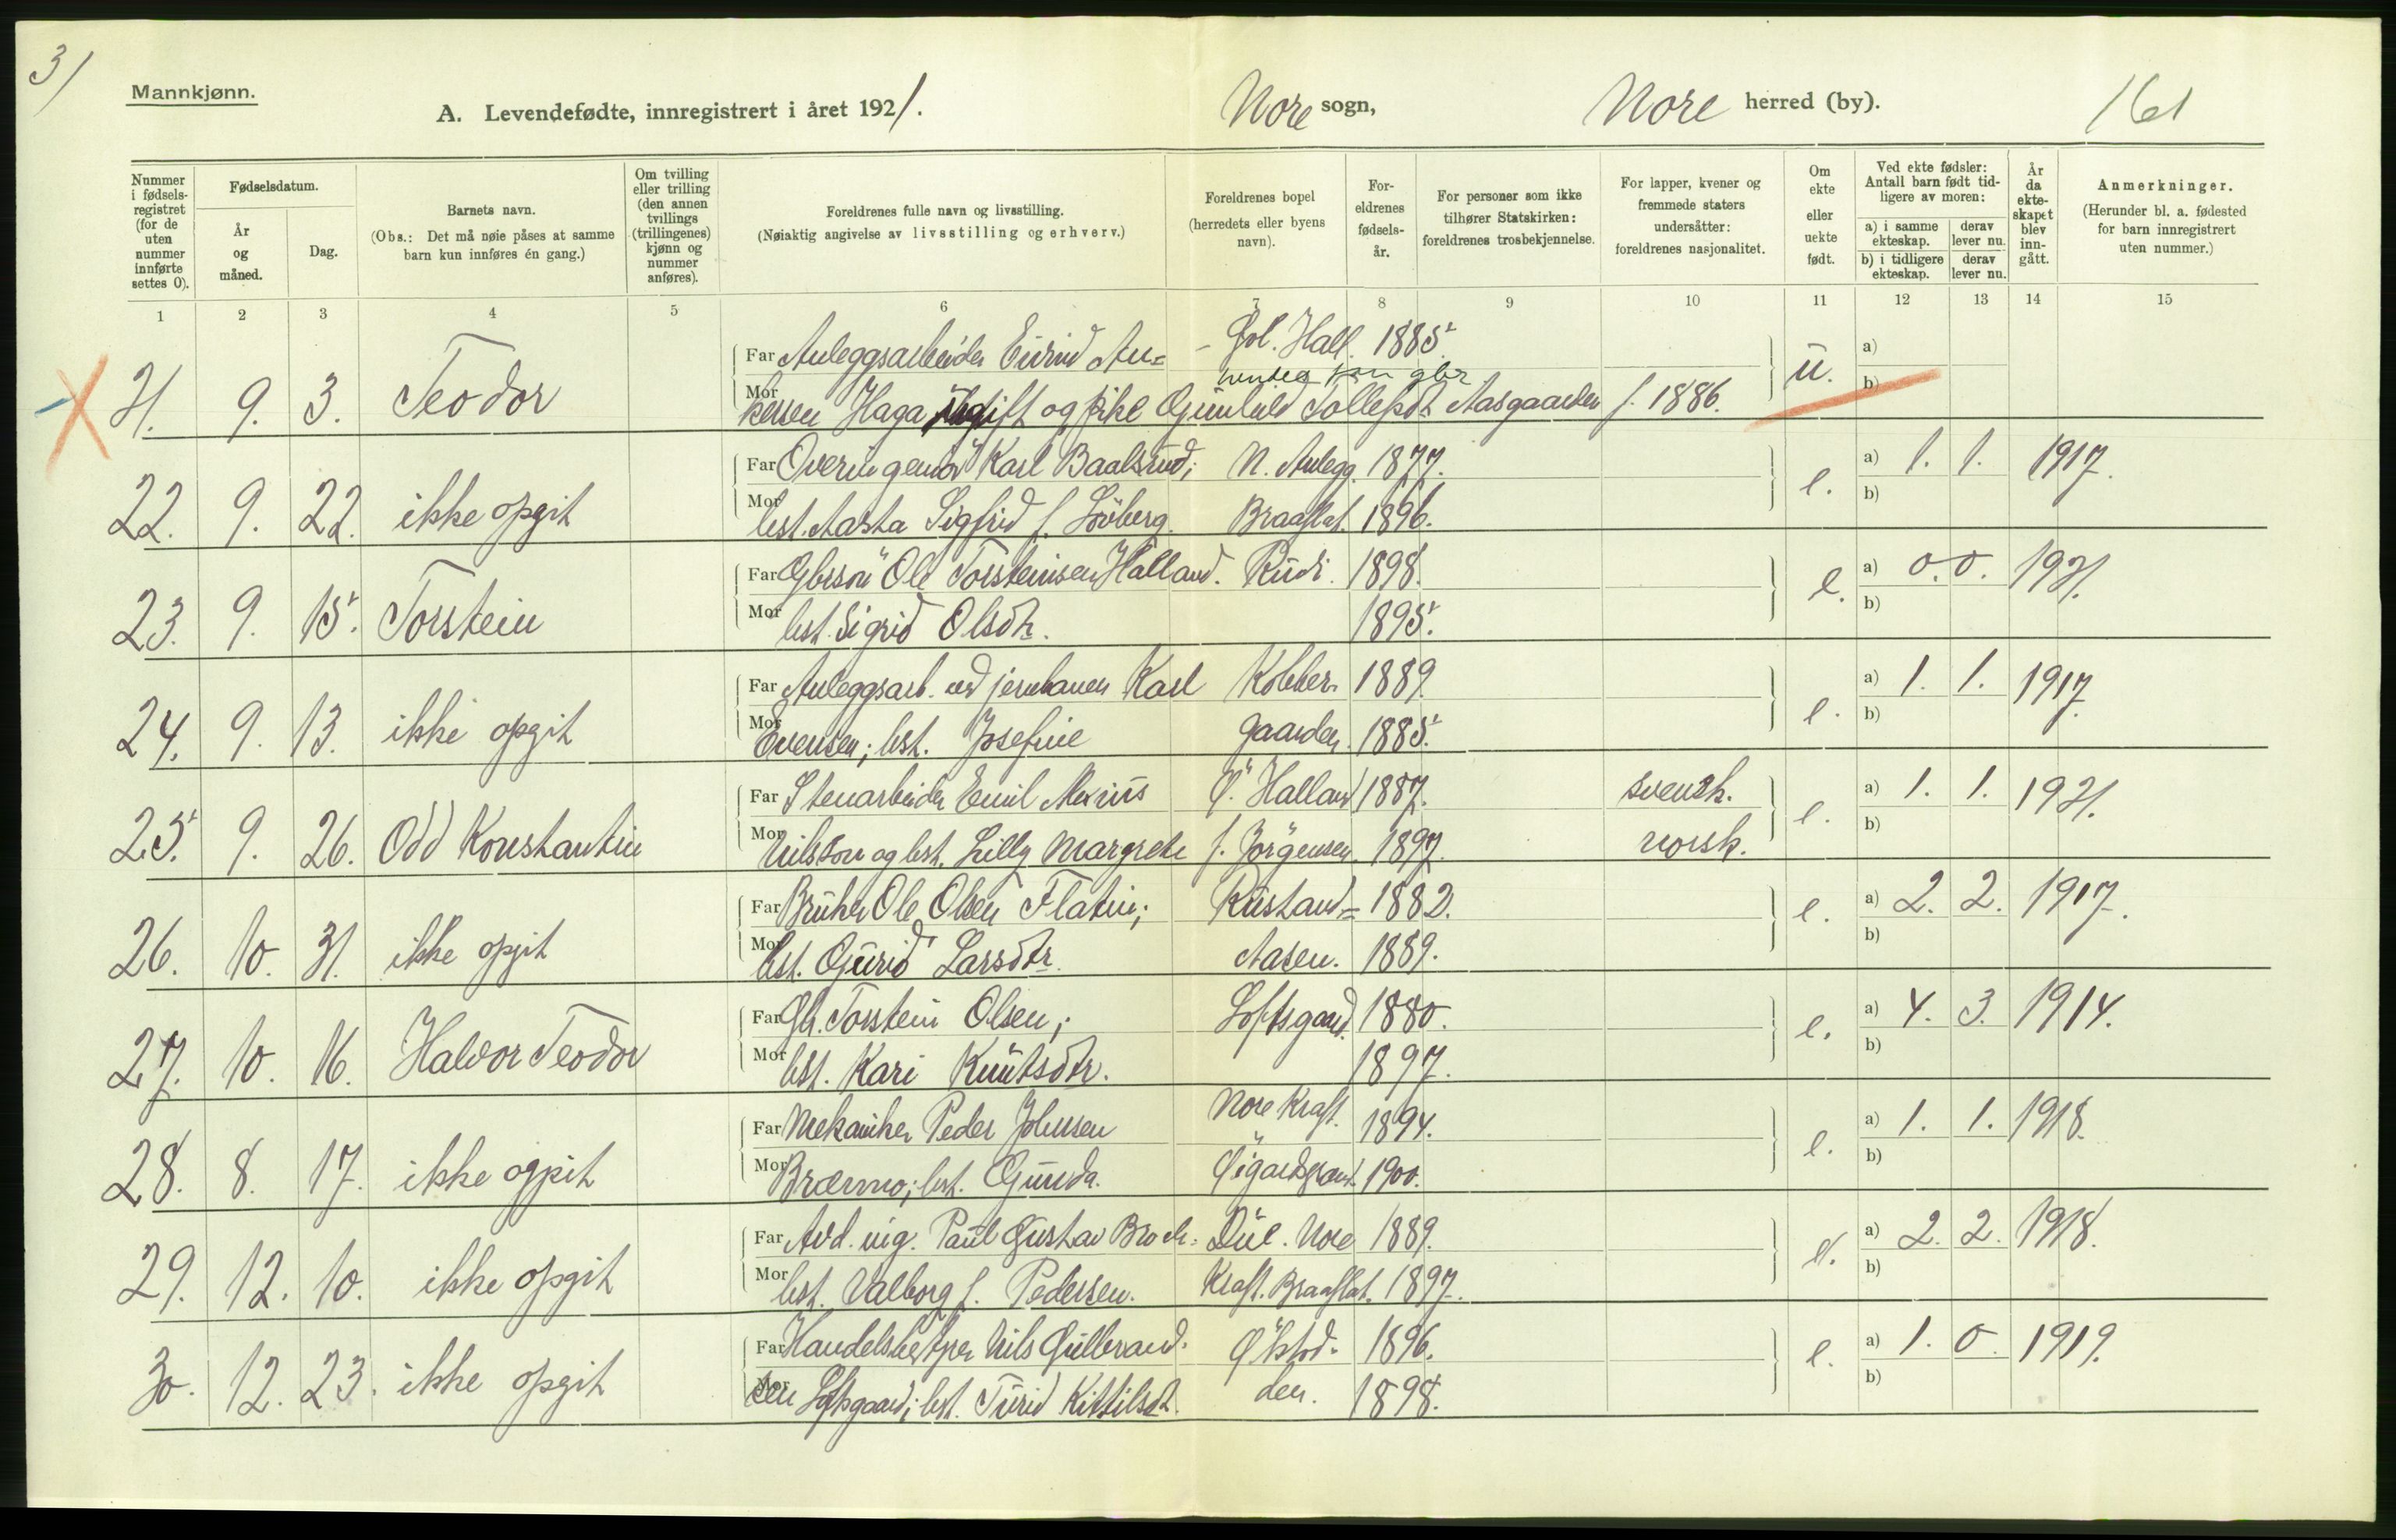 3/
Mannkjønn.
A. Levendefødte, innregistrert i året 1921. Nore sogn, Nore herred (by). 161
Nummer i fødsels-registret (for de uten nummer innførte settes 0).
Fødselsdatum.
År og måned.
Dag.
Barnets navn.
(Obs.: Det må nøie påses at samme barn kun innføres én gang.)
Om tvilling eller trilling (den annen tvillings (trillingenes) kjønn og nummer anføres).
Foreldrenes fulle navn og livsstilling.
(Nøiaktig angivelse av livsstilling og erhverv.)
Foreldrenes bopel (herredets eller byens navn).
For-eldrenes fødsels-år.
For personer som ikke tilhører Statskirken: foreldrenes trosbekjennelse.
For lapper, kvener og fremmede staters undersåtter: foreldrenes nasjonalitet.
Om ekte eller uekte født.
Ved ekte fødsler: Antall barn født tid-ligere av moren:
a) i samme ekteskap. derav lever nu.
b) i tidligere ekteskap. derav lever nu.
År da ekte-skapet blev inn-gått.
Anmerkninger.
(Herunder bl. a. fødested for barn innregistrert uten nummer.)
1 2 3 4 5 6 7 8 9 10 11 12 13 14 15
21. 9. 3. Teodor Far Anleggsarbeider Eivind An= Gol. Hall. 1885. u. a)
Mor kersen Haga ugift og pike Gunhild Tollefsdt Aasgaarden f. 1886. b)
22. 9. 22. ikke opgit Far Overingeniør Karl Baalsrud; N. Anlegg. 1877. e. a) 1. 1. 1917.
Mor hst. Aasta Sigfrid f. Löberg. Braaflat. 1896. b)
23. 9. 15. Torstein Far Gbrsön Ole Torsteinsen Halland. Rudi. 1898. e. a) 0. 0. 1921.
Mor hst. Sigrid Olsdtr. 1895. b)
24. 9. 13. ikke opgit Far Anleggsarb. ved jernbanen Karl Kobber- 1889. e. a) 1. 1. 1917.
Mor Evensen; hst. Josefine gaarden. 1885. b)
25. 9. 26. Odd Konstantin Far Stenarbeider Emil Ö. Halland 1887. svensk. e. a) 1. 1. 1921.
Mor Nilsson og hst. Lilly Margrete f. Jörgensen. 1897. norsk. b)
26. 10. 31. ikke opgit Far Bruker Ole Olsen Flatin; Rustand= 1882. e. a) 2. 2. 1917.
Mor hst. Guri Larsdtr. Aasen. 1889. b)
27. 10. 16. Halvor Teodor Far Gbr. Torstein Olsen; Loftsgaard. 1880. e. a) 4. 3. 1914.
Mor hst. Kari Knutsdtr. 1897. b)
28. 8. 17. ikke ogpit Far Mekaniker Peder Johnsen Nore Kraft. 1894. e. a) 1. 1. 1918.
Mor Bræmo; hst. Gunda. 1900. b)
29. 12. 10. ikke opgit Far Avd. ing. Paul Gustav Broch- Due. Nore 1889. e. a) 2. 2. 1918.
Mor hst. Valborg f. Pedersen. Kraft. Braaflat. 1897. b)
30. 12. 23. ikke opgit Far Handelsbestyrer Nils Gulbrand- 1896. e. a) 1. 0. 1919.
Mor sen Loftsgaard; hst. Turid Kittilsdt. den. 1898. b)